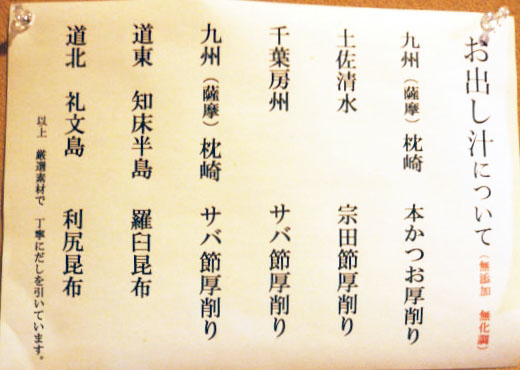 お出し汁について(無添加 無化調)
九州(薩摩)枕崎 本かつお厚削り
土佐清水 宗田節厚削り
千葉房州 サバ節厚削り
九州(薩摩)枕崎 サバ節厚削り
道東 知床半島 羅臼昆布
道北 礼文島 利尻昆布
以上 厳選素材で 丁寧にだしを引いています。